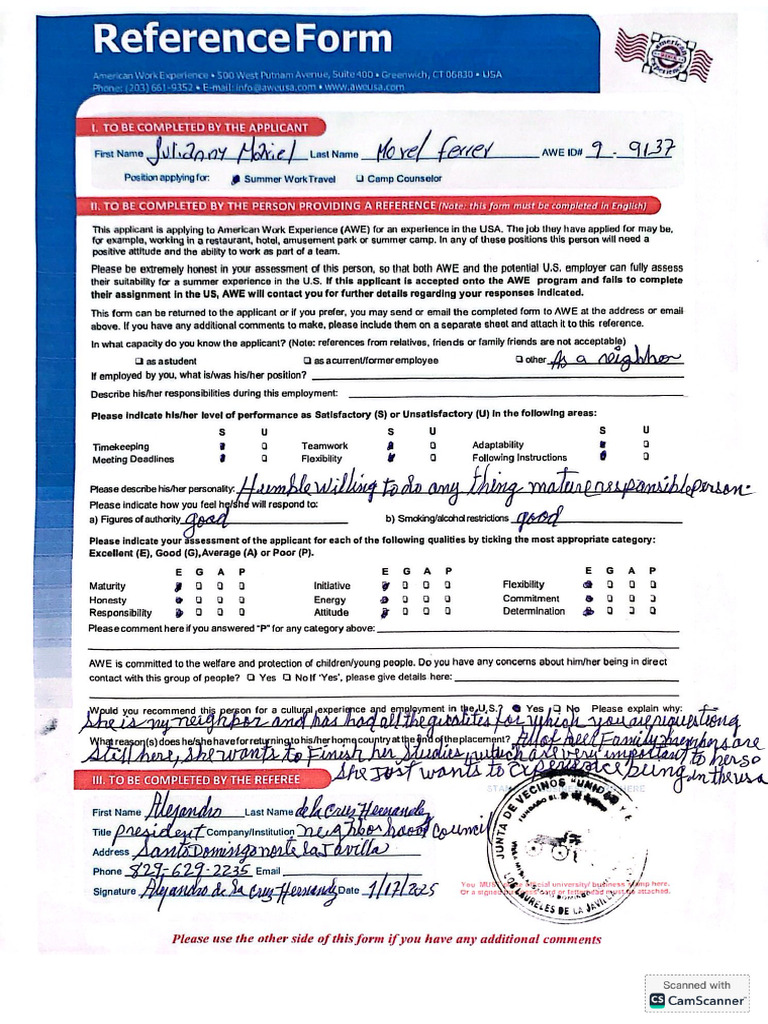 Reference Form
American Work Experience • 500 West Putnam Avenue, Suite 400 • Greenwich, CT 06830 • USA
Phone: (203) 661-9352 • E-mail: info@aweusa.com • www.aweusa.com
american
experience
I. TO BE COMPLETED BY THE APPLICANT
First Name Julianny Mariel Last Name Morel Ferrer AWE ID# 9 - 9137
Position applying for: Summer Work Travel ❑ Camp Counselor
II. TO BE COMPLETED BY THE PERSON PROVIDING A REFERENCE (Note: this form must be completed in English)
This applicant is applying to American Work Experience (AWE) for an experience in the USA. The job they have applied for may be,
for example, working in a restaurant, hotel, amusement park or summer camp. In any of these positions this person will need a
positive attitude and the ability to work as part of a team.
Please be extremely honest in your assessment of this person, so that both AWE and the potential U.S. employer can fully assess
their suitability for a summer experience in the U.S. If this applicant is accepted onto the AWE program and fails to complete
their assignment in the US, AWE will contact you for further details regarding your responses indicated.
This form can be returned to the applicant or if you prefer, you may send or email the completed form to AWE at the address or email
above. If you have any additional comments to make, please include them on a separate sheet and attach it to this reference.
In what capacity do you know the applicant? (Note: references from relatives, friends or family friends are not acceptable)
❑ as a student ❑ as a current/former employee ❑ other As a neighbor
If employed by you, what is/was his/her position?
Describe his/her responsibilities during this employment:
Please indicate his/her level of performance as Satisfactory (S) or Unsatisfactory (U) in the following areas:
S U S U S U
Timekeeping ❑ Teamwork ❑ Adaptability ❑
Meeting Deadlines ❑ Flexibility ❑ Following Instructions ❑
Please describe his/her personality: Humble willing to do any thing mature responsible person.
Please indicate how you feel he/she will respond to:
a) Figures of authority good b) Smoking/alcohol restrictions good
Please indicate your assessment of the applicant for each of the following qualities by ticking the most appropriate category:
Excellent (E), Good (G), Average (A) or Poor (P).
E G A P E G A P E G A P
Maturity ❑ ❑ ❑ Initiative ❑ ❑ ❑ Flexibility ❑ ❑ ❑
Honesty ❑ ❑ ❑ Energy ❑ ❑ ❑ Commitment ❑ ❑ ❑
Responsibility ❑ ❑ ❑ Attitude ❑ ❑ ❑ Determination ❑ ❑ ❑
Please comment here if you answered "P" for any category above:
AWE is committed to the welfare and protection of children/young people. Do you have any concerns about him/her being in direct
contact with this group of people? ❑ Yes ❑ No If 'Yes', please give details here:
Would you recommend this person for a cultural experience and employment in the U.S.? Yes ❑ No Please explain why:
She is my neighbor and has had all the for which you are
What reason(s) does he/she have for returning to his/her home country at the end of the placement? All of her Family members are
still here, she wants to Finish her Studies, which are very important to her so
she Just wants to being in the usa
III. TO BE COMPLETED BY THE REFEREE
First Name Alejandro Last Name de la Cruz Hernandez
Title president Company/Institution neighborhood Council
Address Santo Domingo norte la Javilla
Phone 829-629-2235 Email
Signature Alejandro de la Cruz Hernandez Date 1/17/2025
JUNTA DE VECINOS "UNIDOS
LOS LAURELES DE LA JAVILLA
You MUST official university/ business stamp here.
Or a signed card or letterhead must be attached.
Please use the other side of this form if you have any additional comments
Scanned with
CS CamScanner